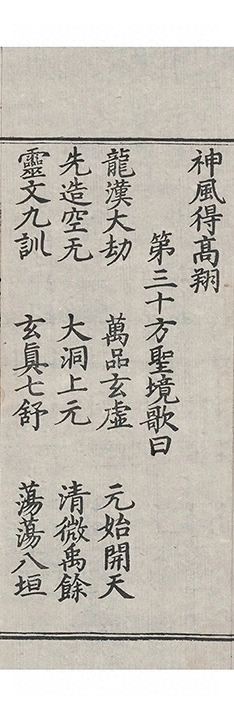 神風得高翔
第三十方聖境歌曰
龍漢大劫 萬品玄虛 元始開天
先造空无 大洞上元 清微禹餘
靈文九訓 玄真七舒 蕩蕩八垣